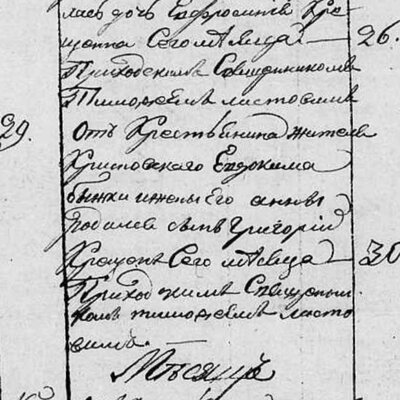 лась дочь Евфросинія Кре
щенна Сего мѣсяца 26.
Приходскимъ Священникомъ
Тимофеемъ Ластовимъ
29. Отъ Крестьянина жителя
Евдокима
и жены Его Анны
Родился сынъ Григорій
Крещенъ Сего мѣсяца 30
Приходскимъ Священни
комъ Тимофеемъ Ласто
вимъ.
Мѣсяцъ